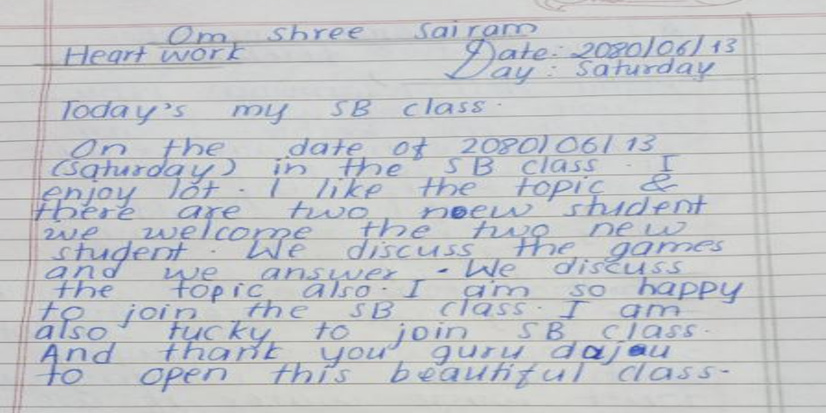 Om Shree Sairam
Heart work Date: 2080/06/13
Day: Saturday
Today's my SB class.
On the date of 2080/06/13
(Saturday) in the SB class. I
enjoy lot. I like the topic &
there are two noew student
we welcome the two new
student. We discuss the games
and we answer. We discuss
the topic also. I am so happy
to join the SB class. I am
also lucky to join SB class.
And thank you guru dajau
to open this beautiful class.